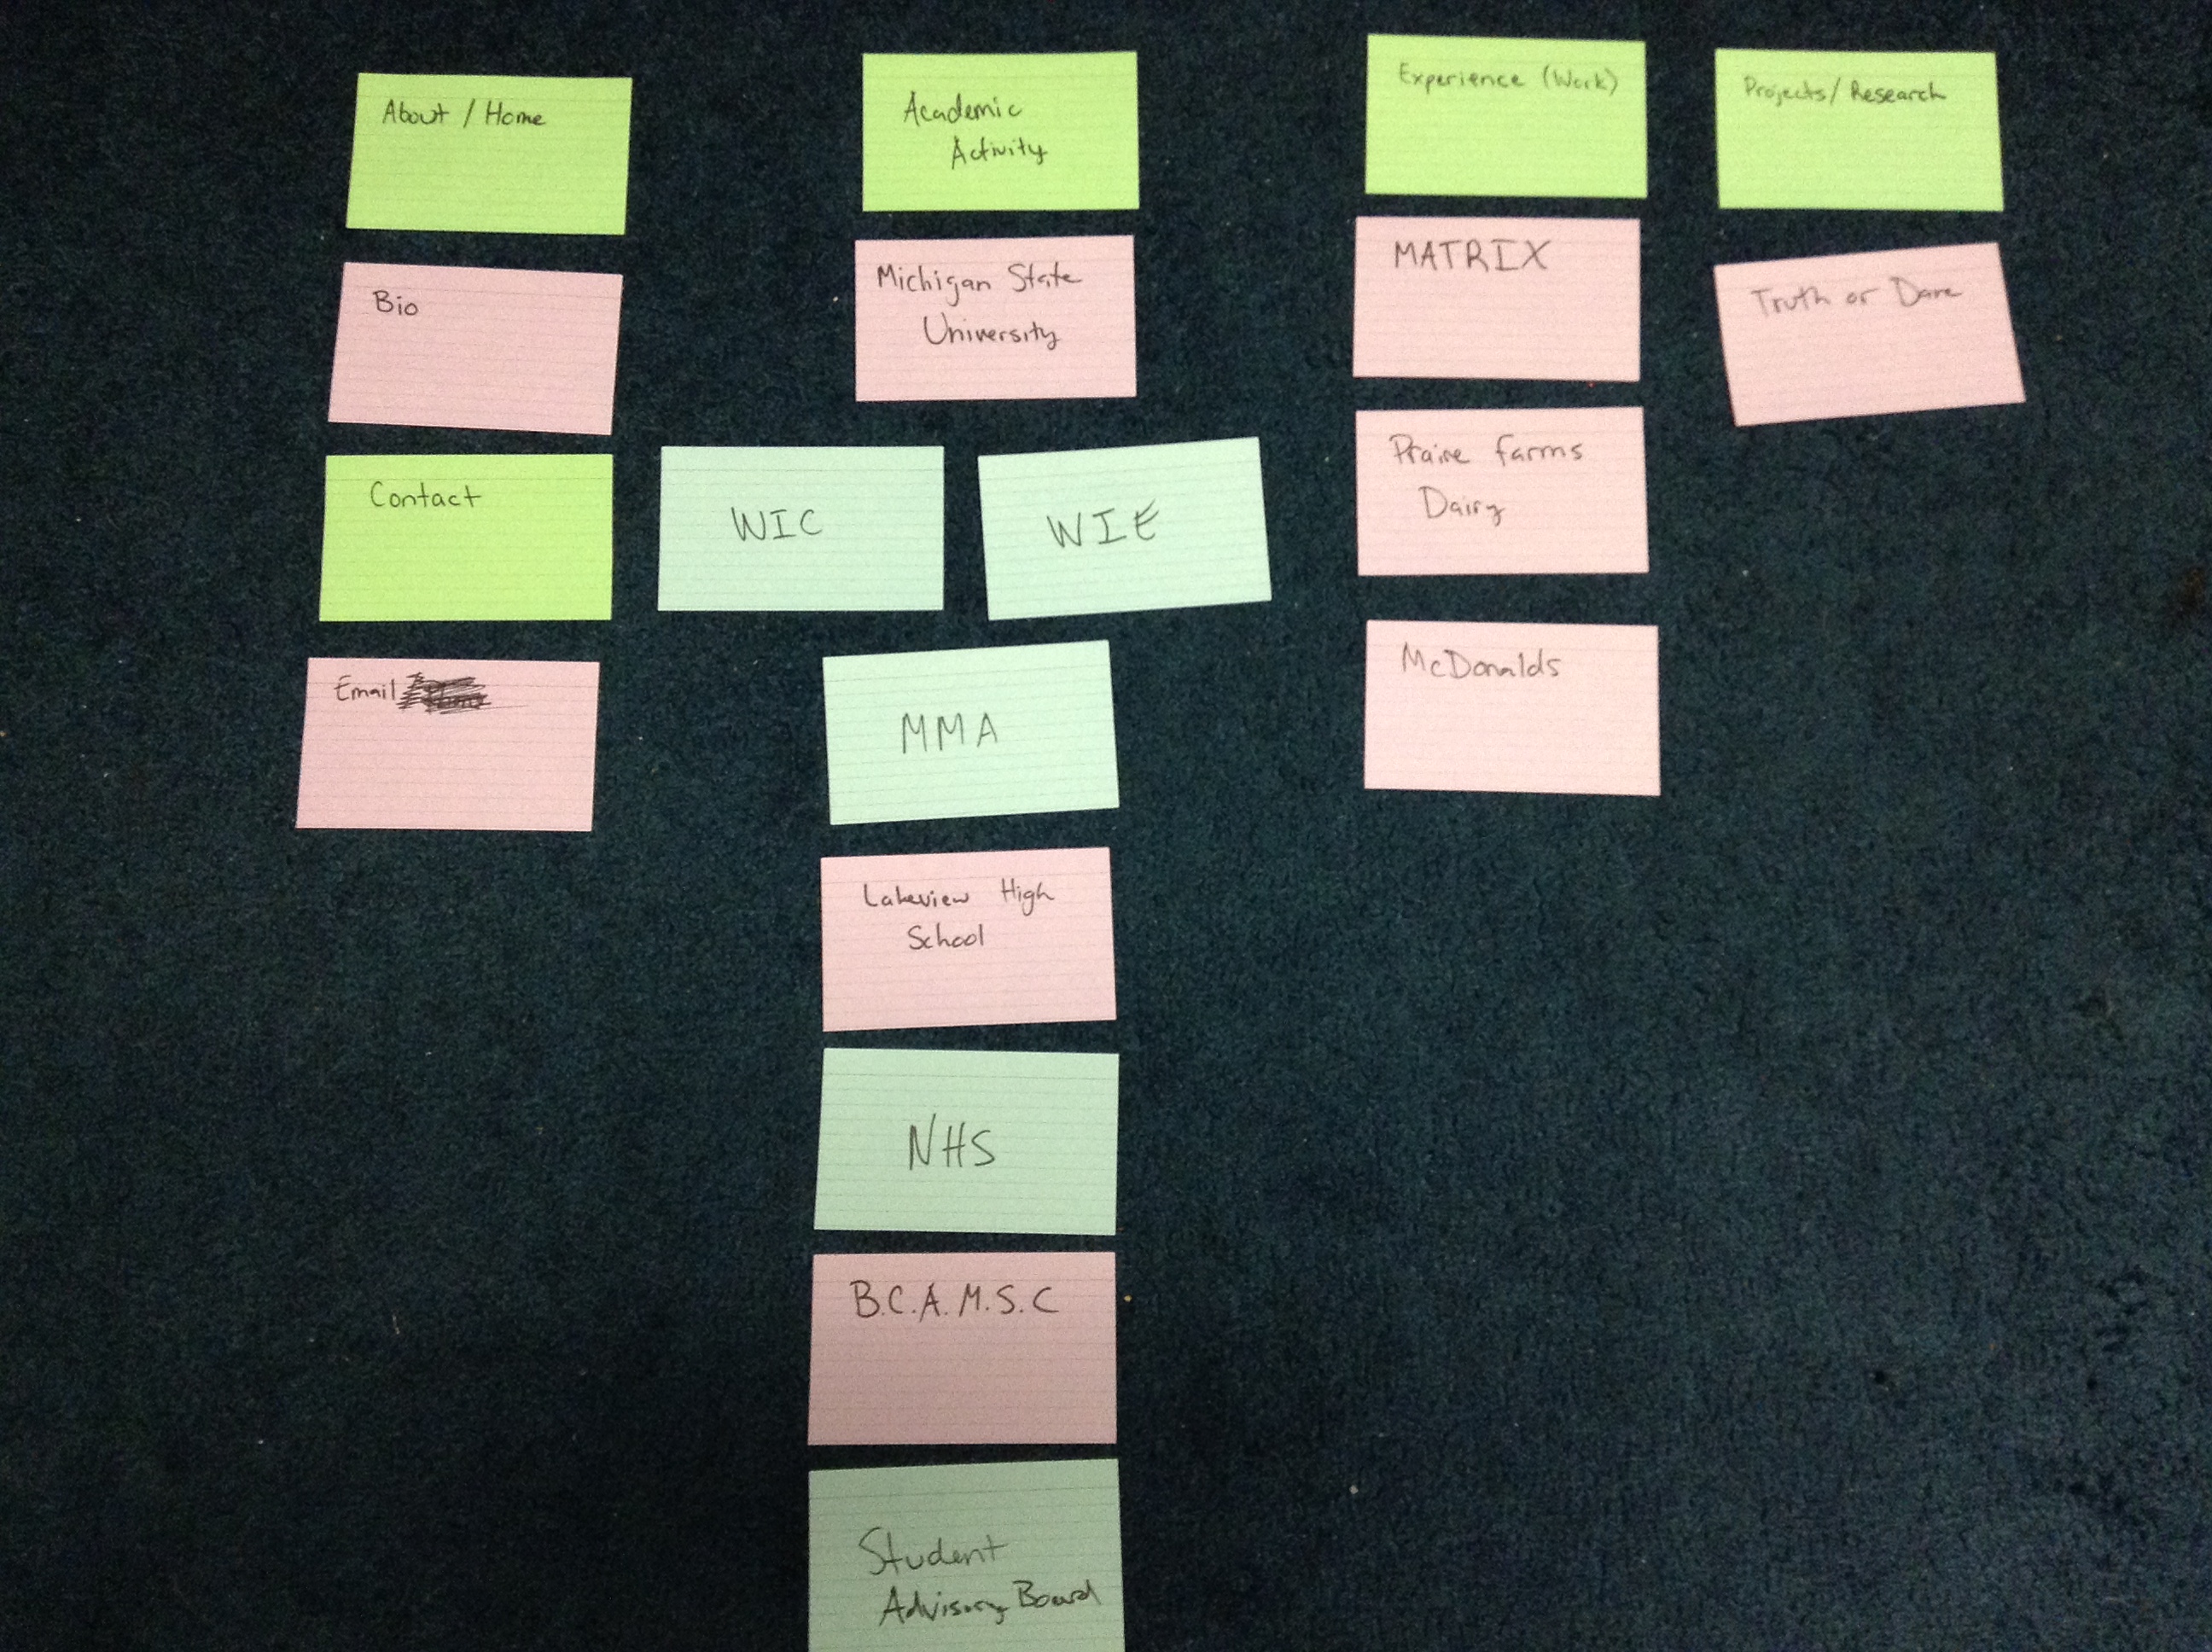 About / Home
Bio
Contact
Email
Academic
Activity
Michigan State
University
WIC
WIE
MMA
Lakeview High
School
NHS
B.C.A.M.S.C
Student
Advisory Board
Experience (Work)
MATRIX
Prairie farms
Dairy
McDonalds
Projects/Research
Truth or Dare